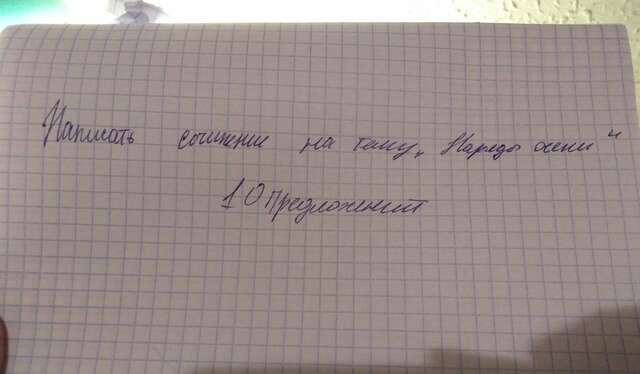 Написать сочинение на тему „Наряды осени“
10 предложений